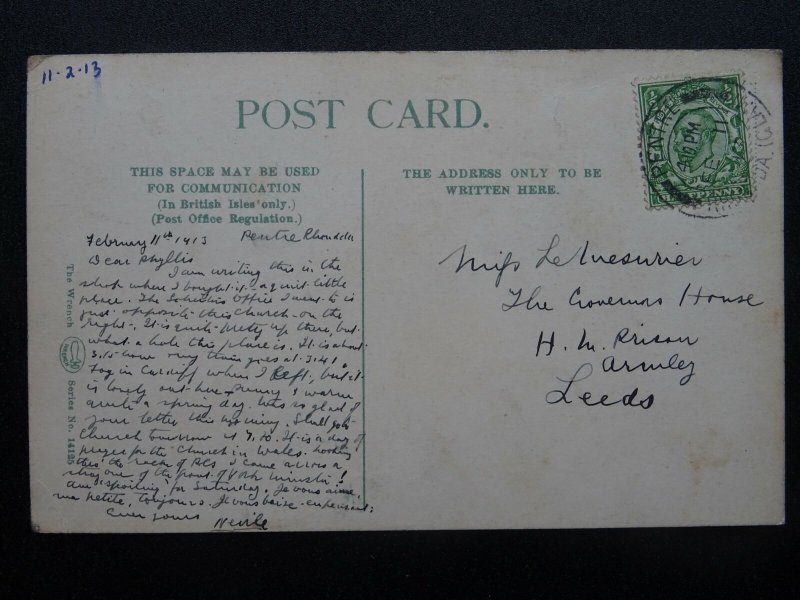 11-2-13
POST CARD.
THIS SPACE MAY BE USED
FOR COMMUNICATION
(In British Isles only.)
(Post Office Regulation.)
THE ADDRESS ONLY TO BE
WRITTEN HERE.
PENTRE
PENNY
February 11th 1913 Pentre Rhondda
Dear Phyllis
I am writing this in the
shop where I bought it. a quiet little
place. The Solicitors Office I went to is
just opposite this church on the
right. It is quite pretty up there, but
what a hole this place is. It is about
3.15 now my train goes at 3.41
Fog in Cardiff when I left, but it
is lovely out here sunny & warm
quite a spring day. Was so glad of
your letter this morning. Shall go to
Church tomorrow at 7.30. It is a day of
prayer for the Church in Wales. Looking
thro' the rack of PCs I came across a
one of the front of York Minster!
Am "spoiling" for Saturday. Je vous aime,
ma petite, toujours. Je vous baise en pensant:
Ever yours Nevile
The Wrench
WRENCH
Series No. 14125
Miss Le Mesurier
The Governors House
H. M. Prison
Armley
Leeds